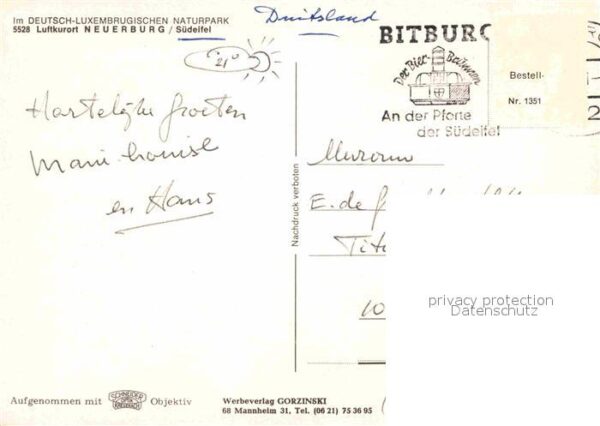 Im DEUTSCH-LUXEMBRUGISCHEN NATURPARK
5528 Luftkurort NEUERBURG / Südeifel
Duitsland
21°
Hartelijke groeten
Marie Louise
en Hans
BITBURG
Der Bier-Brunnen
An der Pforte
der Südeifel
Bestell-
Nr. 1351
2
Nachdruck verboten
E. de
10
privacy protection
Datenschutz
Aufgenommen mit SCHNEIDER KREUZNACH Objektiv
Werbeverlag GORZINSKI
68 Mannheim 31, Tel. (06 21) 75 36 95